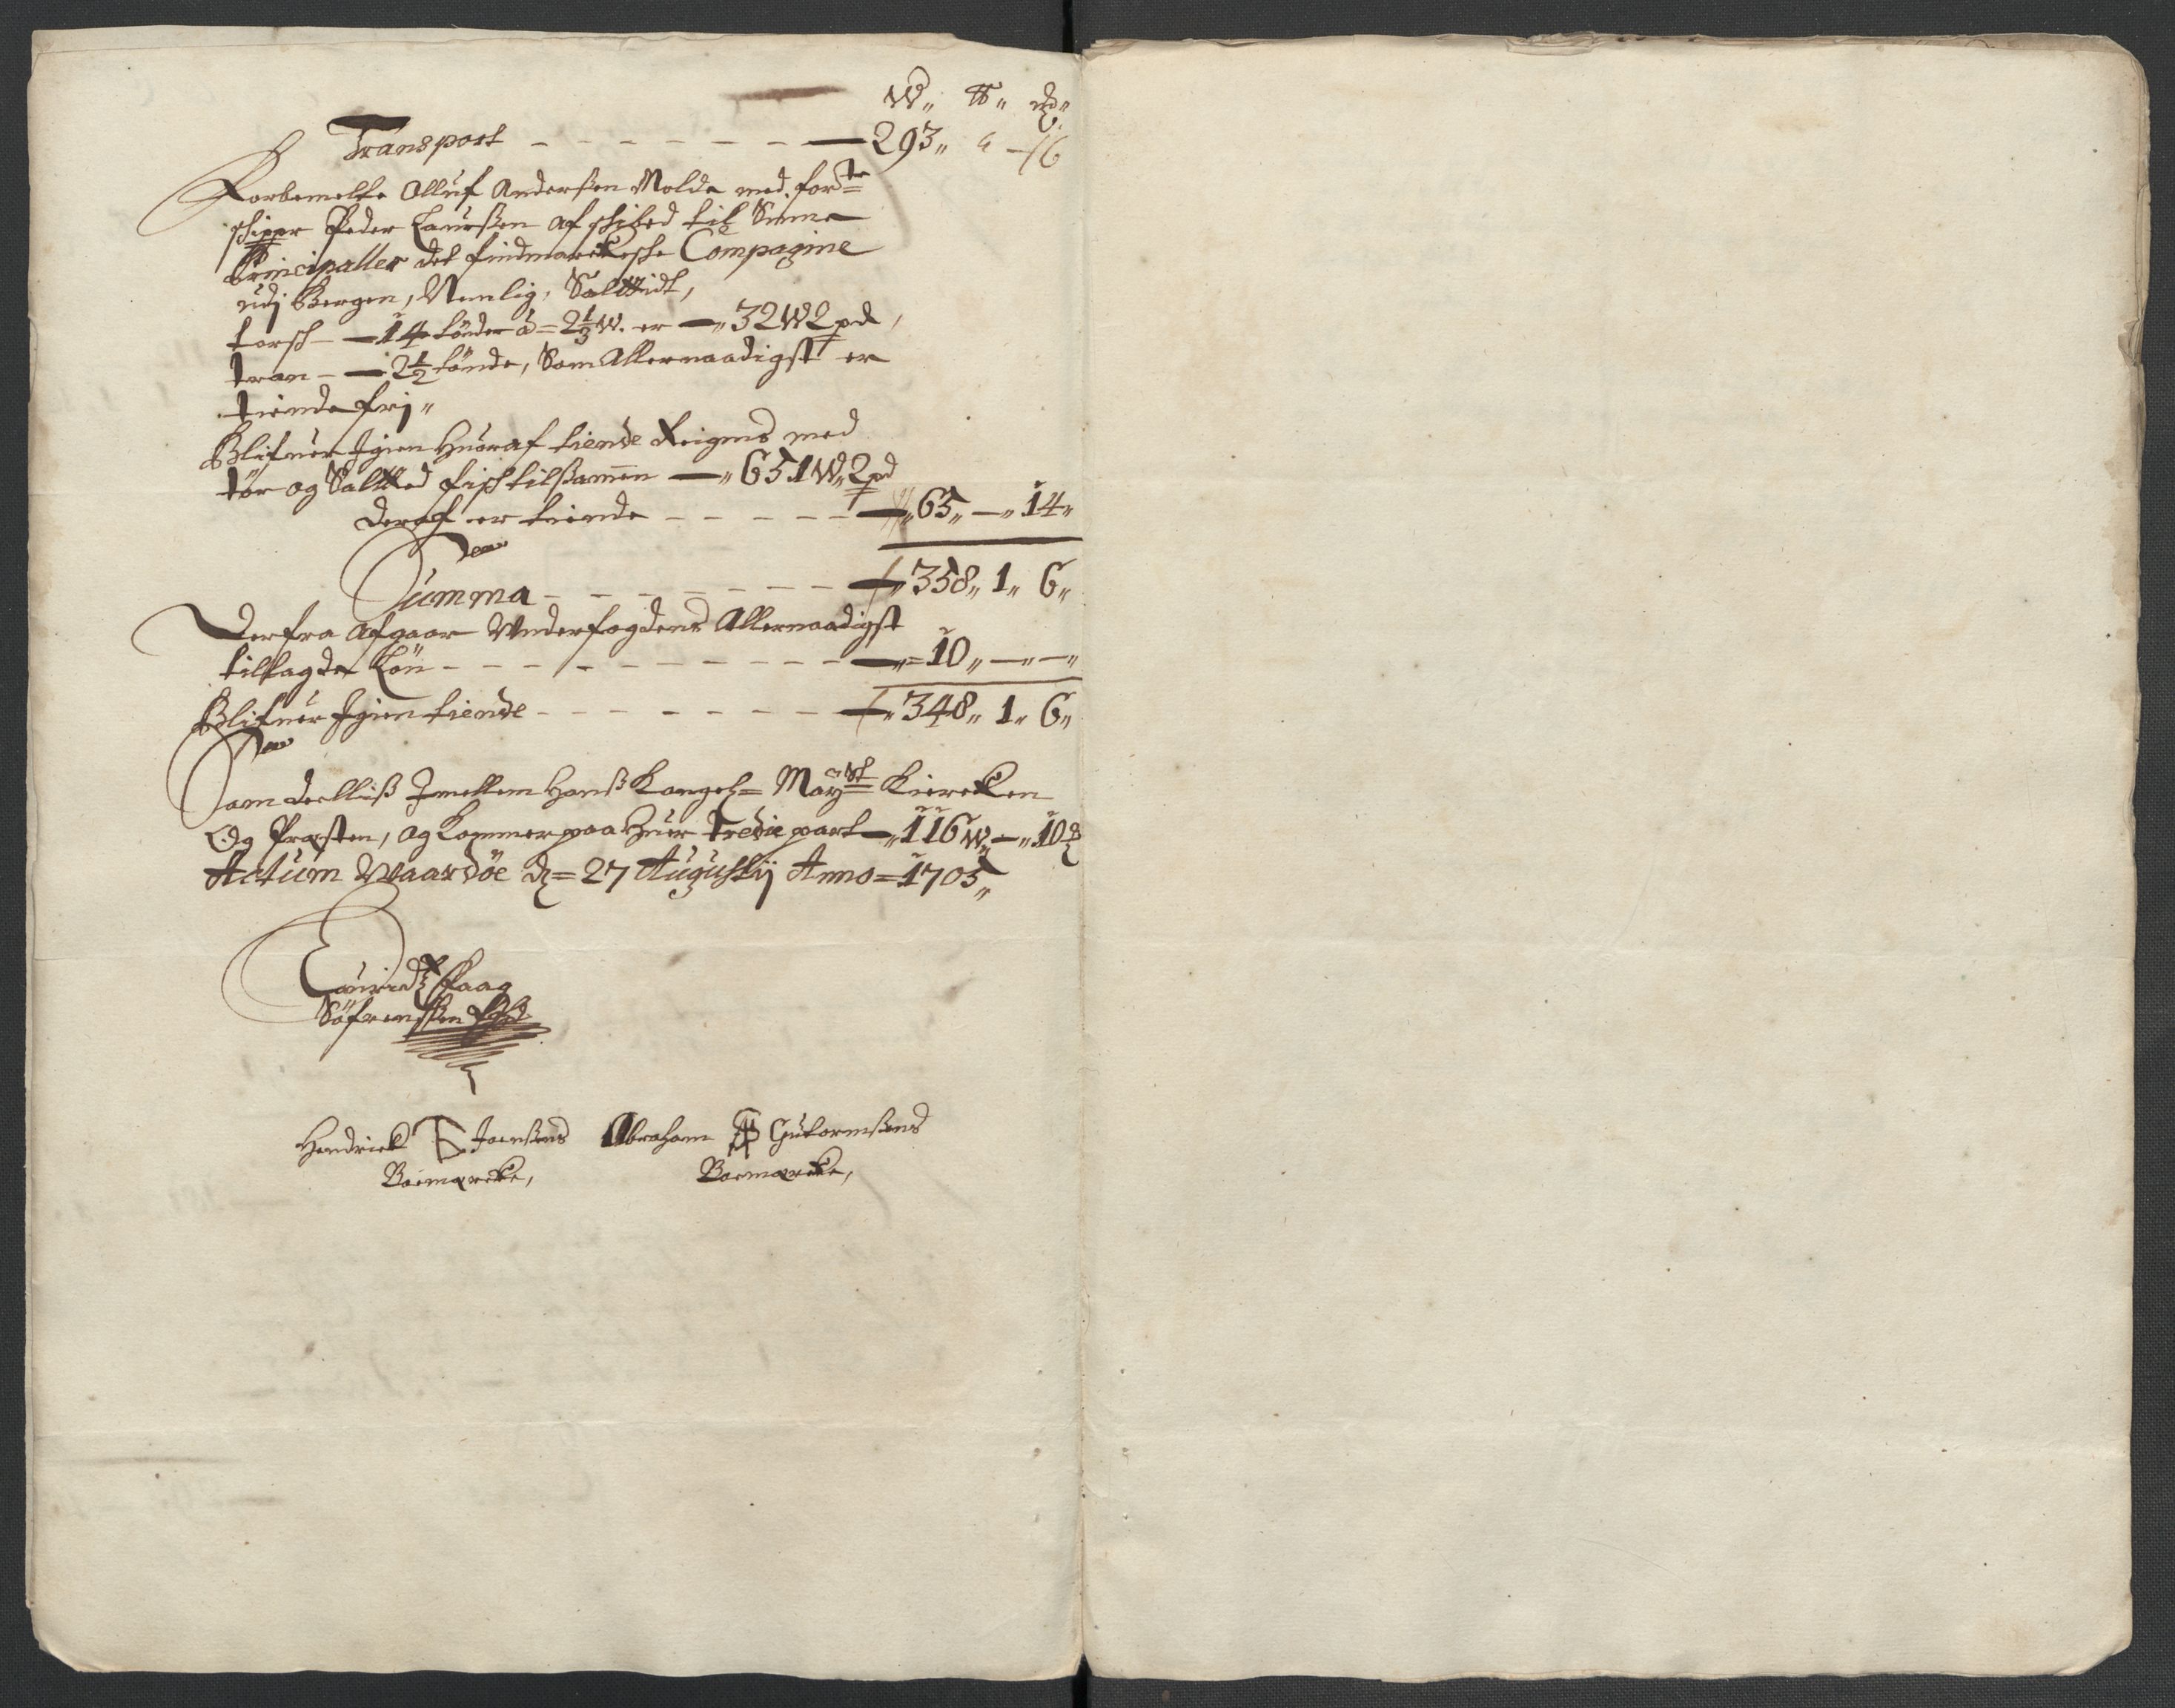 W„ ℔„ mk„
Transport - - - - - - - — 293„ „ — 16
Forbemelte Olluf Anderßen Molde med for^te
schipper Peder Laurßen afschibed til Sinne
Principaller det findmarckesche Compagine
udj Bergen, Nemlig, Salttidt,
torsch - — 14 tönder à = 2 1/3 W. er —„ 32 W 2 pd,
tran - — 2 1/2 tönde, Som Allernaadigst er
tiende frj„
Blifuer Igien Huoraf tiende Reignes med
tör og Saltted fisch tilßamen —„ 651 W„ 2 pd
deraf er tiende - - - - - —„ 65„ —„ 14„
Summa - - - - - - - — 358„ 1„ 6„
Derfra afgaar Underfogdens Allernaadigst
tillagde Lön - - - - - - - - - - —„ = 10„ —„ —„
Blifuer Igien tiende - - - - - - - - —„ 348„ 1„ 6„
Som deelliß Imellem Hanß Kongel= May^st Kiercken
Og Præsten, og Kommer paa Huer tredie part —„ 116 W„ —„ 10 ℔
Actum Waardöe d = 27 Augustij Anno = 1705„
Lauridz
Söfrensen
Hendrick Joenßens Abraham Gutormßens
Boemarcke, Boemarcke,